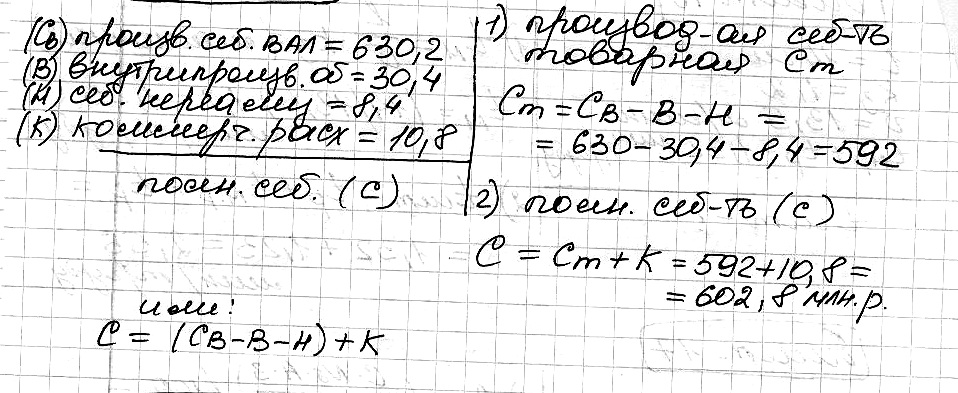 (Св) произв. себ. ВАЛ = 630,2
(В) внутрипроизв. об = 30,4
(Н) себ. нереализ = 8,4
(К) коммерч. расх = 10,8
полн. себ. (С)
или:
С = (Св-В-Н)+К
1) производ-ая себ-ть
товарная Ст
Ст = Св - В - Н =
= 630 - 30,4 - 8,4 = 592
2) полн. себ-ть (с)
С = Ст + К = 592 + 10,8 =
= 602,8 млн.р.